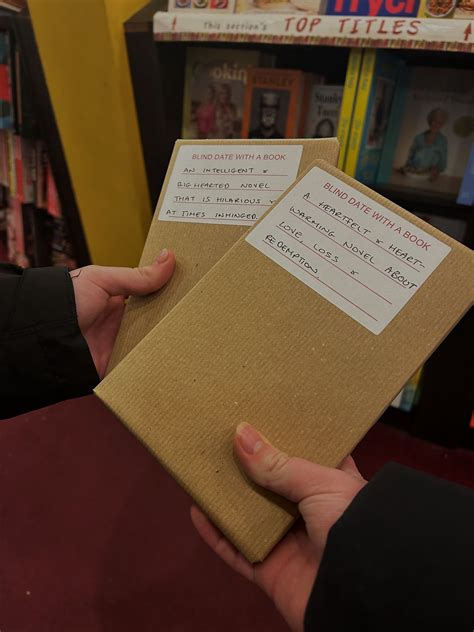 this section's TOP TITLES
STANLEY
BLIND DATE WITH A BOOK
AN INTELLIGENT &
BIG HEARTED NOVEL
THAT IS HILARIOUS &
AT TIMES UNHINGED.
BLIND DATE WITH A BOOK
A HEARTFELT & HEART-
WARMING NOVEL ABOUT
LOVE, LOSS &
REDEMPTION.